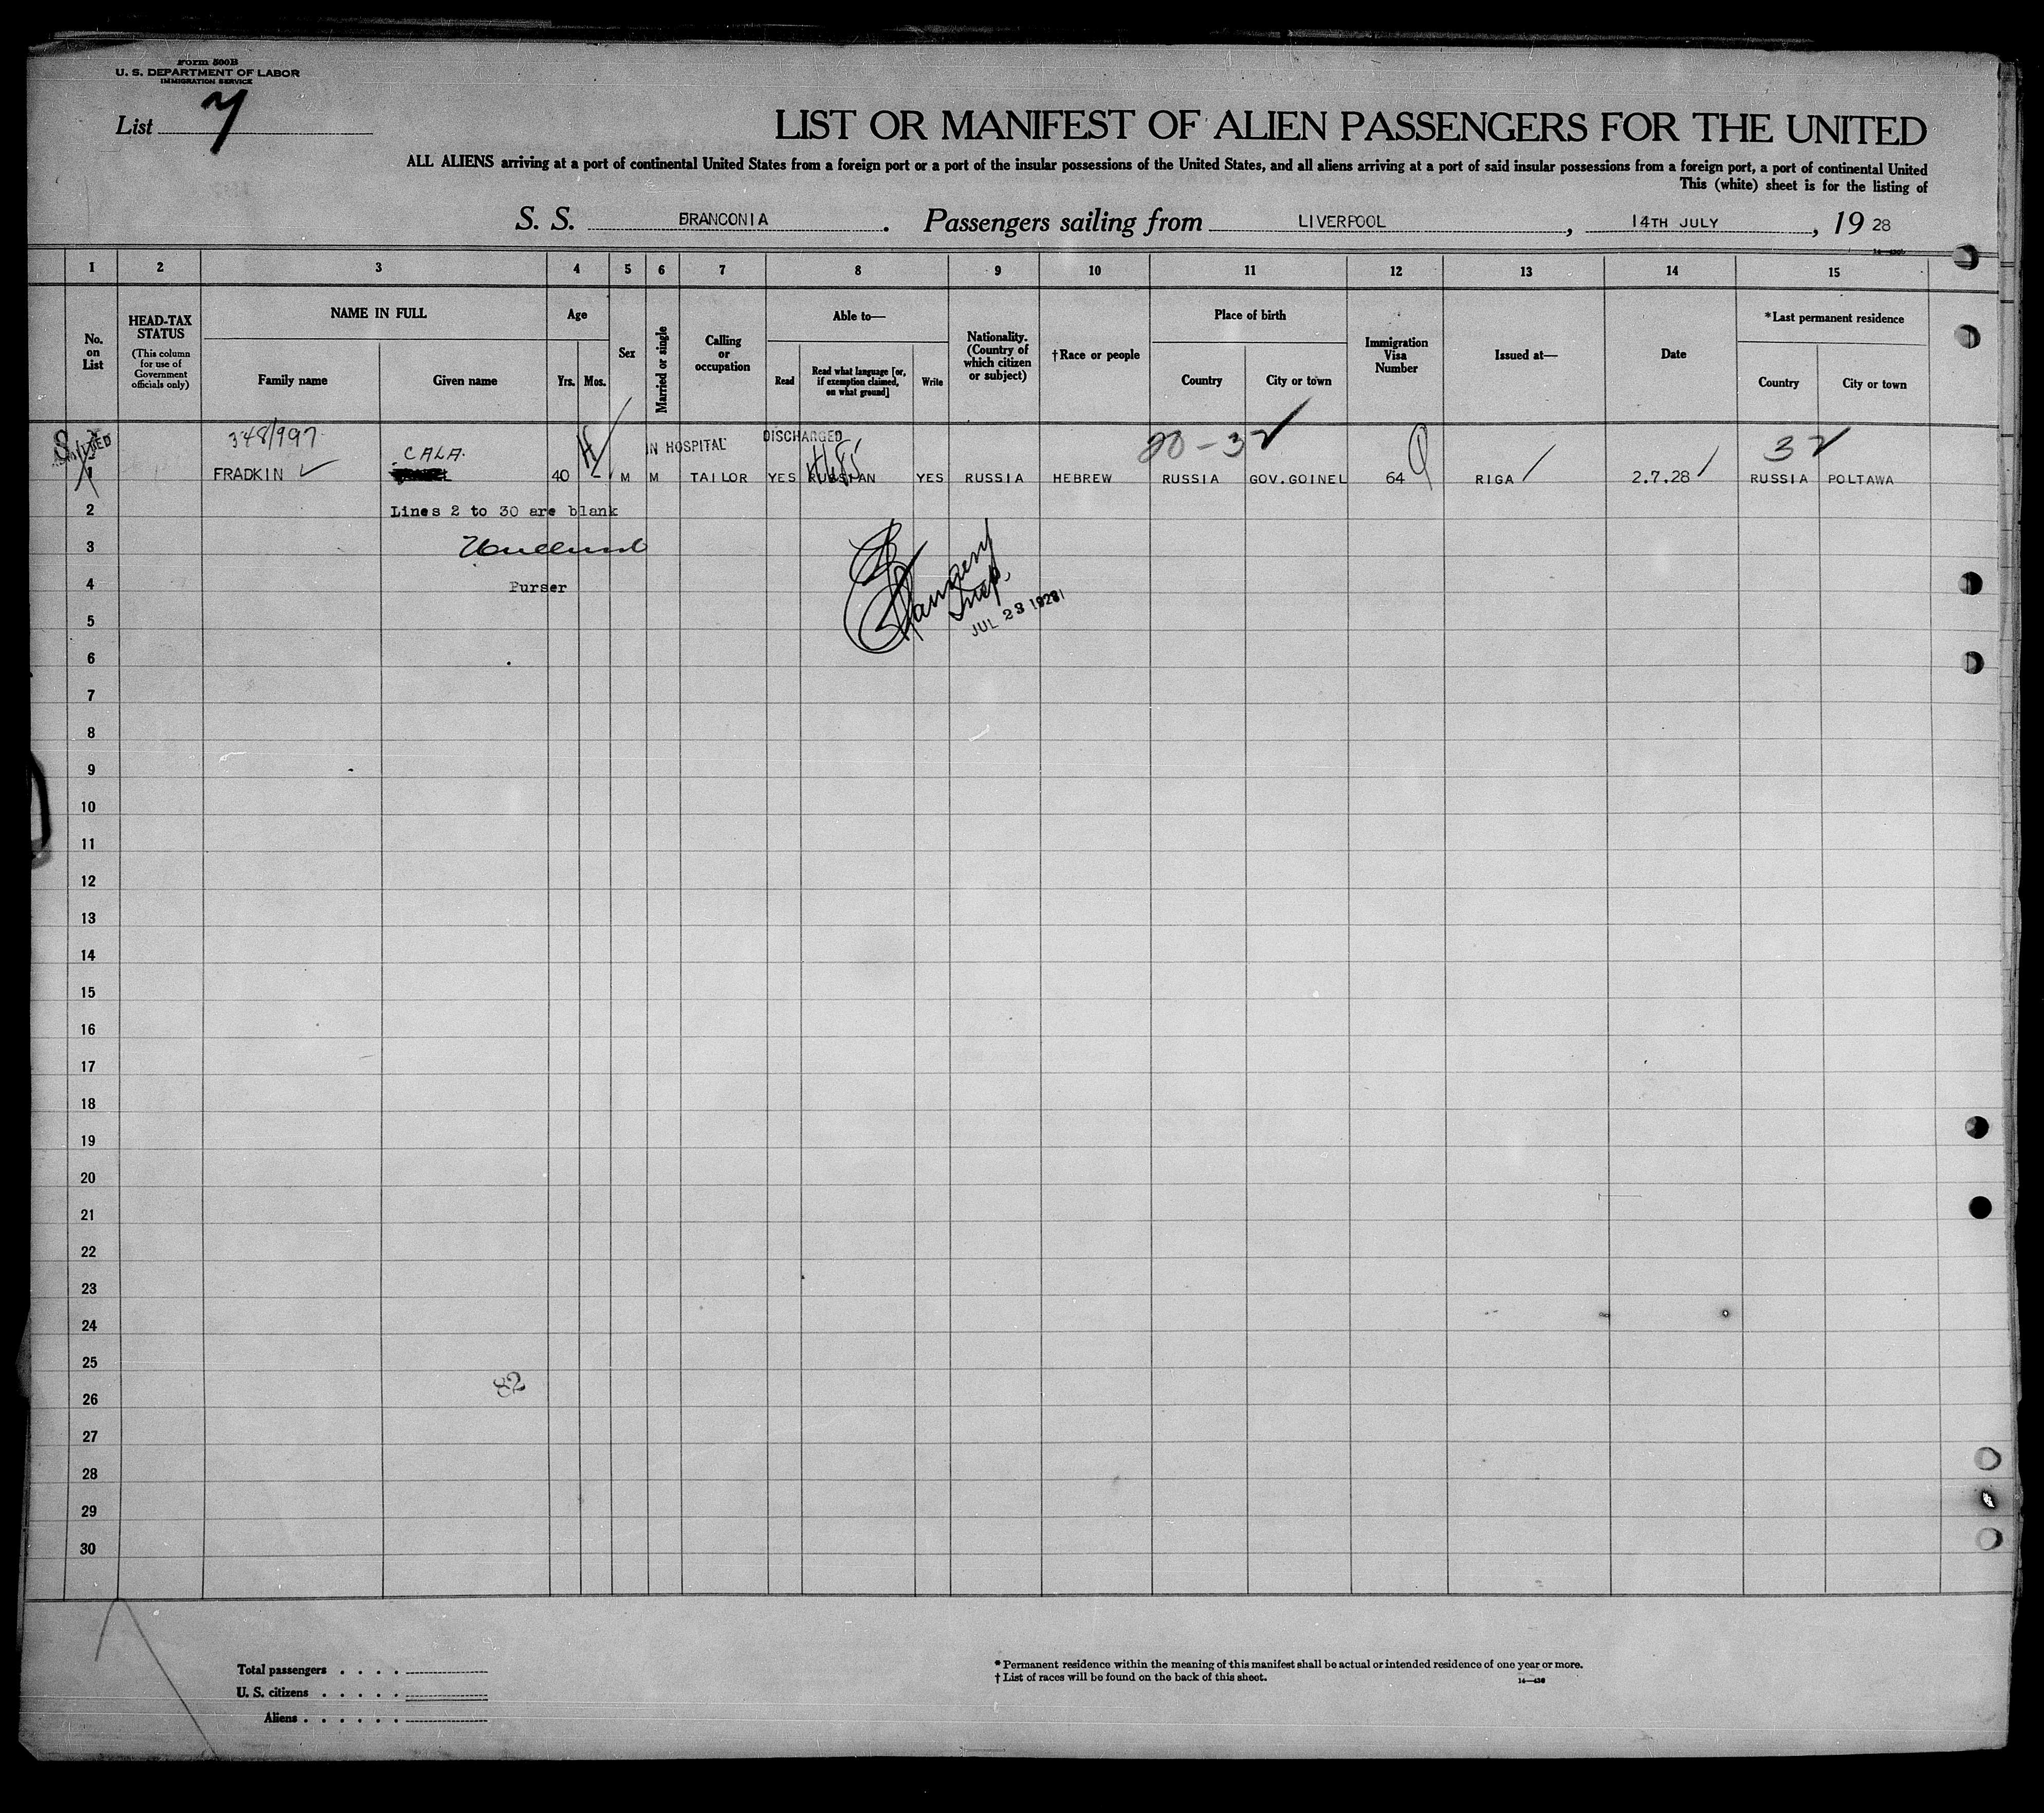 Form 500B
U. S. DEPARTMENT OF LABOR
IMMIGRATION SERVICE
List 7
LIST OR MANIFEST OF ALIEN PASSENGERS FOR THE UNITED
ALL ALIENS arriving at a port of continental United States from a foreign port or a port of the insular possessions of the United States, and all aliens arriving at a port of said insular possessions from a foreign port, a port of continental United
This (white) sheet is for the listing of
S. S. BRANCONIA. Passengers sailing from LIVERPOOL, 14TH JULY, 19 28
1 2 3 4 5 6 7 8 9 10 11 12 13 14 15
No. on List
HEAD-TAX STATUS (This column for use of Government officials only)
NAME IN FULL
Family name Given name
Age
Yrs. Mos.
Sex
Married or single
Calling or occupation
Able to—
Read Read what language [or, if exemption claimed, on what ground] Write
Nationality. (Country of which citizen or subject)
†Race or people
Place of birth
Country City or town
Immigration Visa Number
Issued at—
Date
*Last permanent residence
Country City or town
348/997 CALA. IN HOSPITAL DISCHARGED 20-32 32
1 FRADKIN 40 M M TAILOR YES RUSSIAN YES RUSSIA HEBREW RUSSIA GOV.GOINEL 64 RIGA 2.7.28 RUSSIA POLTAWA
2 Lines 2 to 30 are blank
3
4 Purser
Insp.
JUL 23 1928
5
6
7
8
9
10
11
12
13
14
15
16
17
18
19
20
21
22
23
24
25
82
26
27
28
29
30
Total passengers . . . .
U. S. citizens . . . . .
Aliens . . . . . .
* Permanent residence within the meaning of this manifest shall be actual or intended residence of one year or more.
† List of races will be found on the back of this sheet.